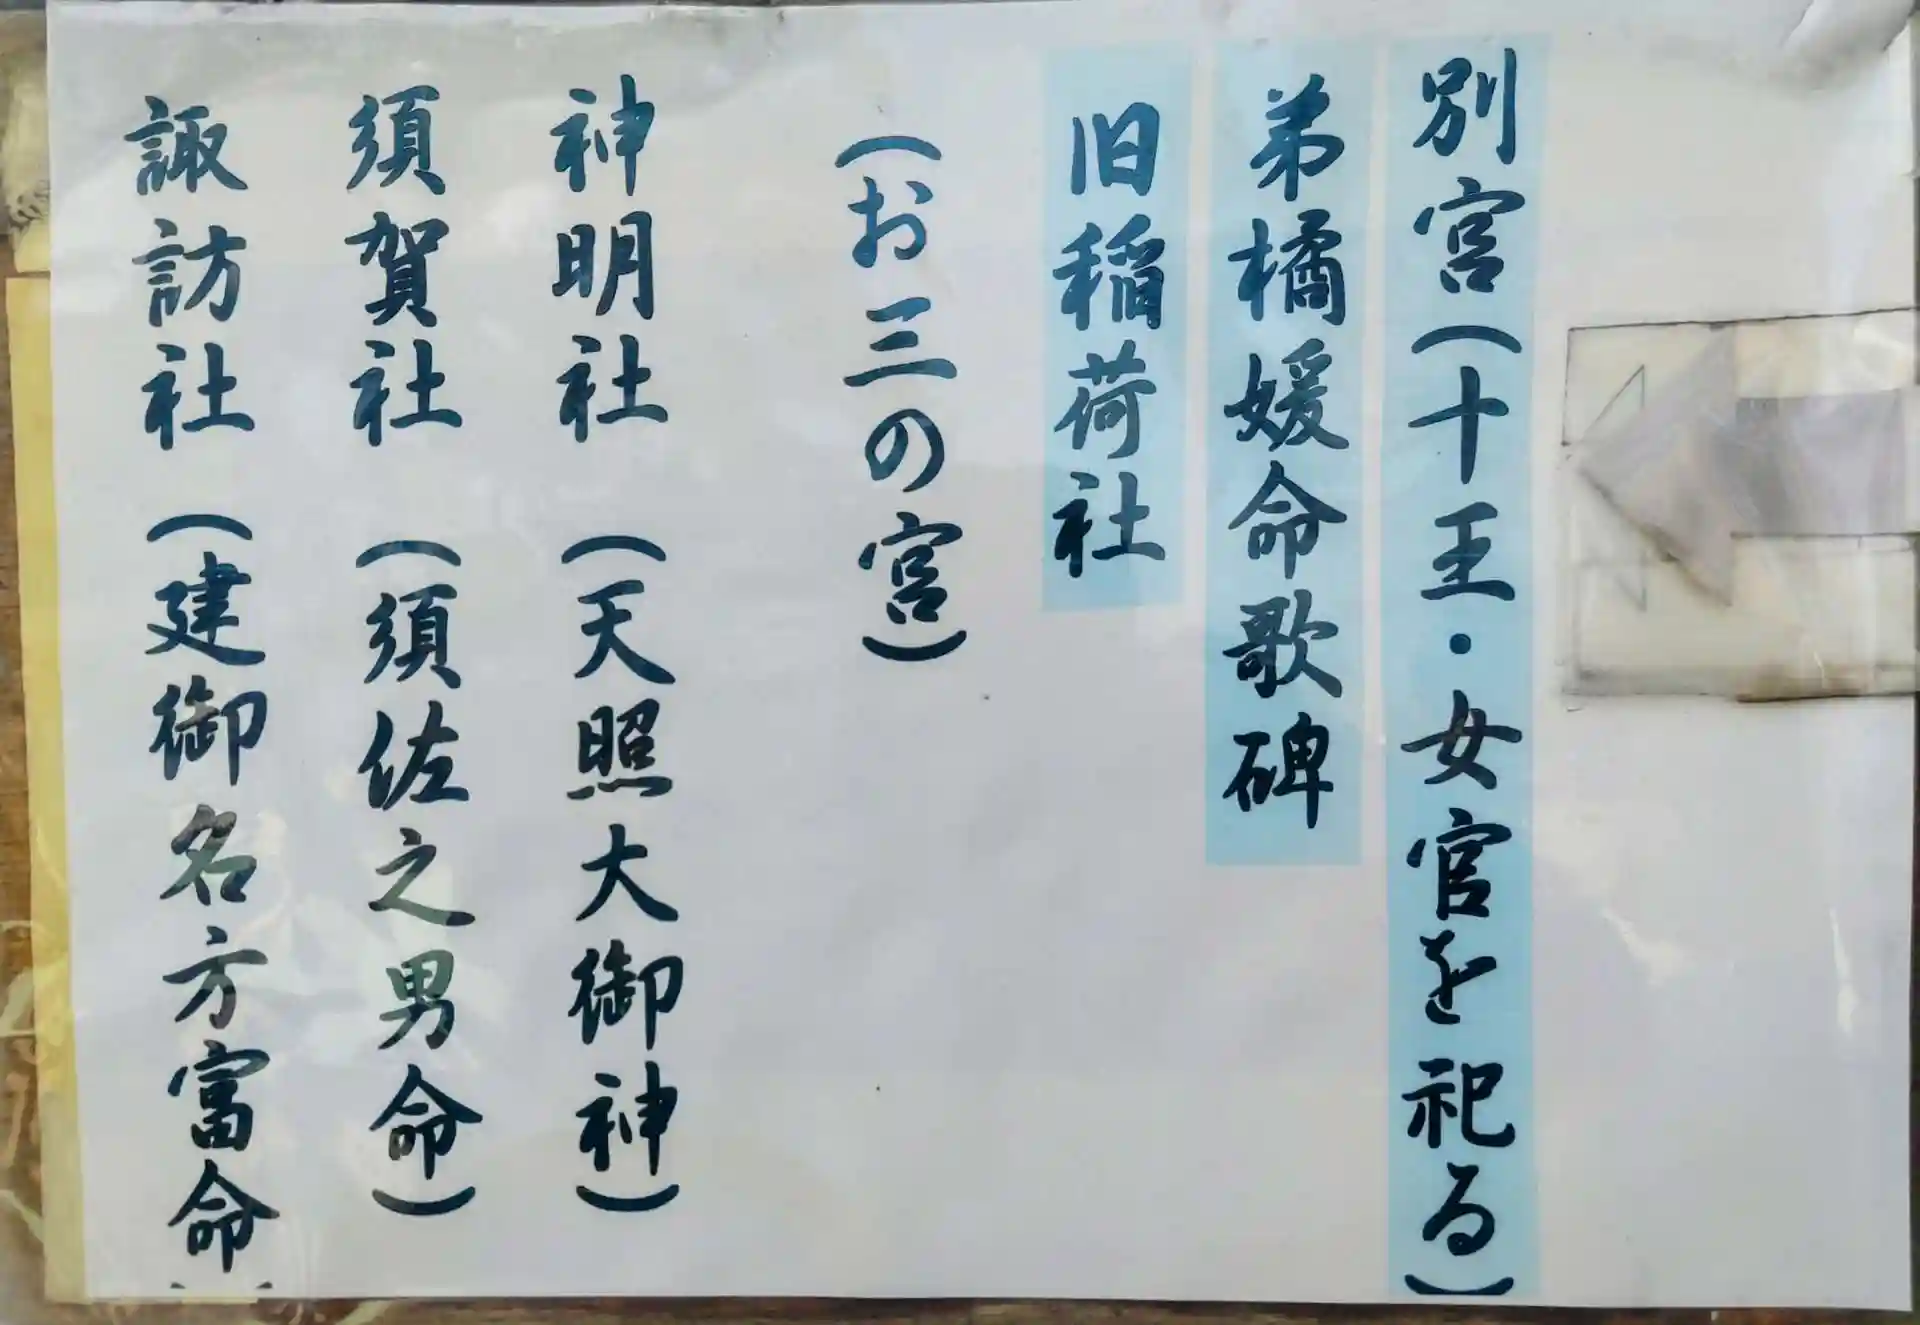 別宮(十王・女官を祀る)
弟橘媛命歌碑
旧稲荷社
(お三の宮)
神明社 (天照大御神)
須賀社 (須佐之男命)
諏訪社 (建御名方富命)